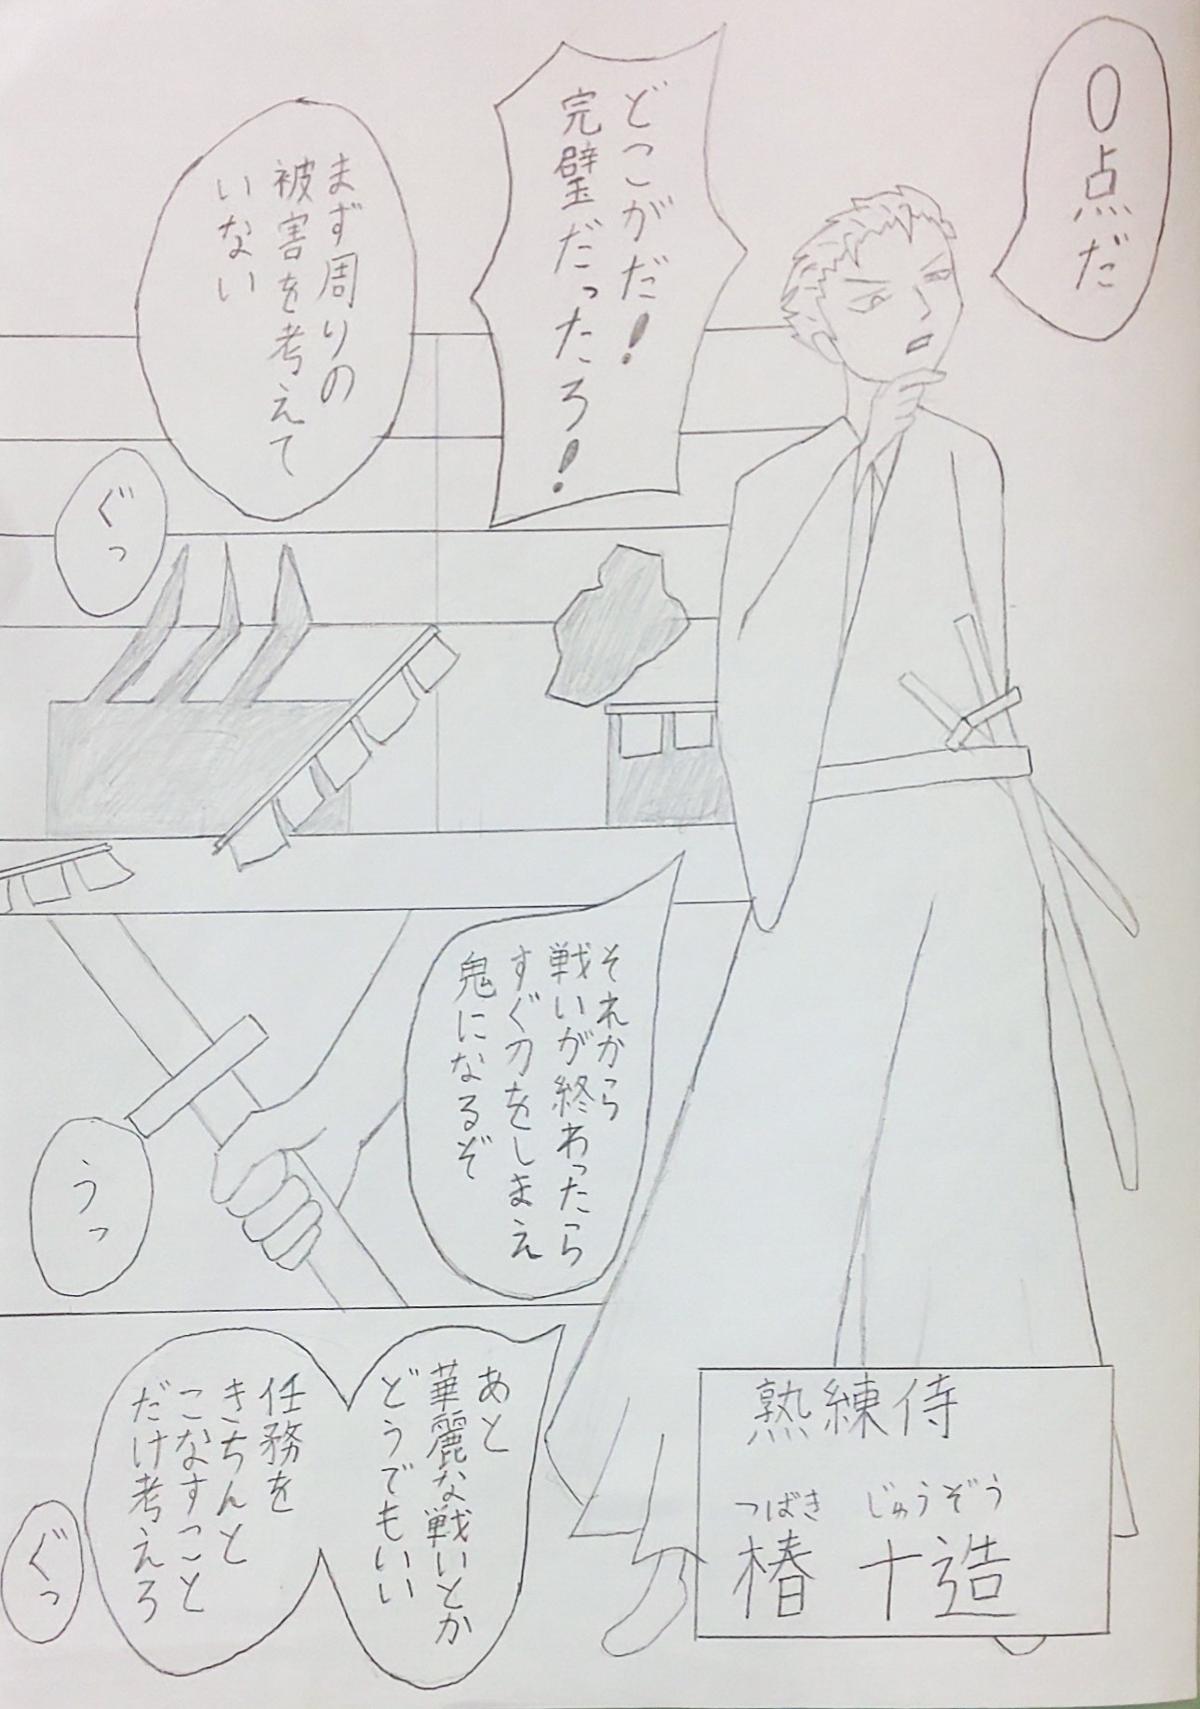 ０点だ
どこがだ！
完璧だったろ！
まず周りの
被害を考えて
いない
ぐっ
それから
戦いが終わったら
すぐ刀をしまえ
鬼になるぞ
うっ
あと
華麗な戦いとか
どうでもいい
任務を
きちんと
こなすこと
だけ考えろ
ぐっ
熟練侍
つばき じゅうぞう
椿 十造